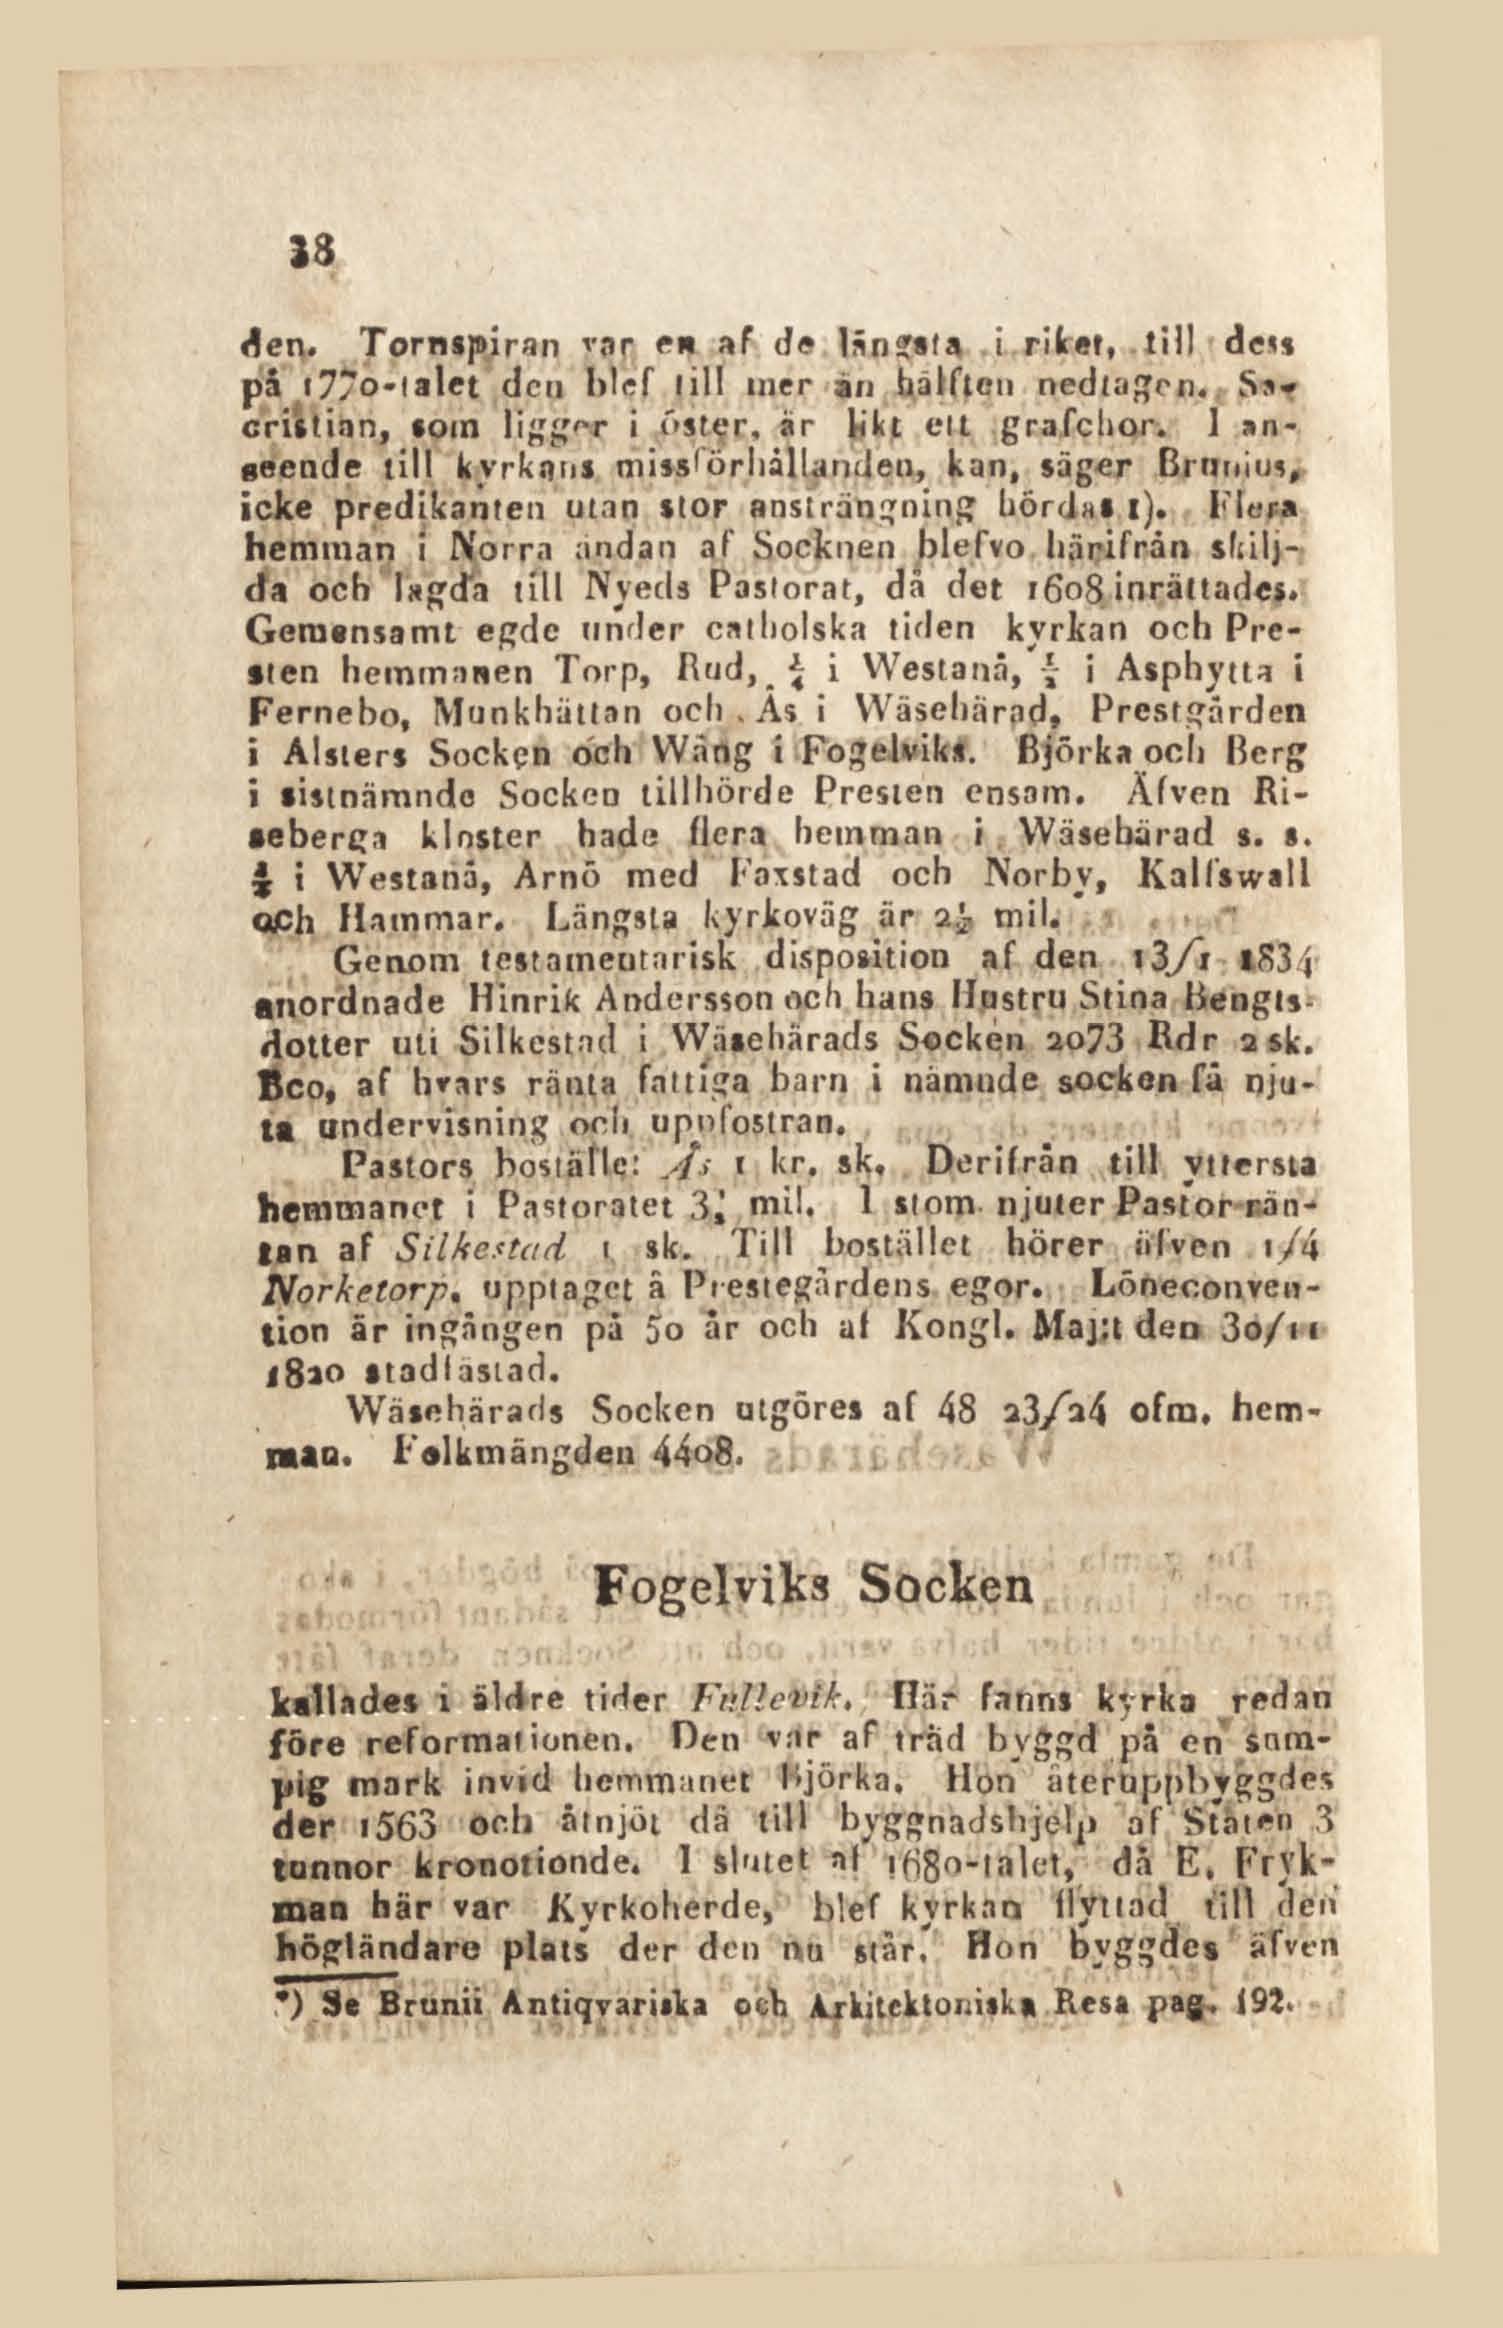 38
den. Tornspiran var en af de längsta i riket, till dess
på 1770-talet den blef till mer än hälften nedtagen. Sa-
cristian, som ligger i öster, är likt ett grafchor. I an-
seende till kyrkans missförhållanden, kan, säger Brunius,
icke predikanten utan stor ansträngning hördas 1). Flera
hemman i Norra ändan af Socknen blefvo härifrån skilj-
da och lagda till Nyeds Pastorat, då det 1608 inrättades.
Gemensamt egde under catholska tiden kyrkan och Pre-
sten hemmanen Torp, Rud, ¼ i Westanå, ½ i Asphytta i
Fernebo, Munkhättan och Ås i Wäsehärad, Prestgården
i Alsters Socken och Wäng i Fogelviks. Björka och Berg
i sistnämnde Socken tillhörde Presten ensam. Äfven Ri-
seberga kloster hade flera hemman i Wäsehärad s. s.
½ i Westanå, Arnö med Faxstad och Norby, Kalfswall
och Hammar. Längsta kyrkoväg är 2½ mil.
Genom testamentarisk disposition af den 13/1 1834
anordnade Hinrik Andersson och hans Hustru Stina Bengts-
dotter uti Silkestad i Wäsehärads Socken 2073 Rdr 2 sk.
Bco, af hvars ränta fattiga barn i nämnde socken få nju-
ta undervisning och uppfostran.
Pastors boställe: Ås 1 kr. sk. Derifrån till yttersta
hemmanet i Pastoratet 3¼ mil. I stom njuter Pastor rän-
tan af Silkestad 1 sk. Till bostället hörer äfven 1/4
Norketorp, upptaget å Prestegårdens egor. Löneconven-
tion är ingången på 50 år och af Kongl. Maj:t den 30/11
1820 stadfästad.
Wäsehärads Socken utgöres af 48 23/24 ofm. hem-
man. Folkmängden 4408.
Fogelviks Socken
kallades i äldre tider Fullevik. Här fanns kyrka redan
före reformationen. Den var af träd byggd på en sum-
pig mark invid hemmanet Björka. Hon återuppbyggdes
der 1563 och åtnjöt då till byggnadshjelp af Staten 3
tunnor kronotionde. I slutet af 1680-talet, då E. Fryk-
man här var Kyrkoherde, blef kyrkan flyttad till den
högländare plats der den nu står. Hon byggdes äfven
*) Se Brunii Antiqvariska och Arkitektoniska Resa pag. 192.